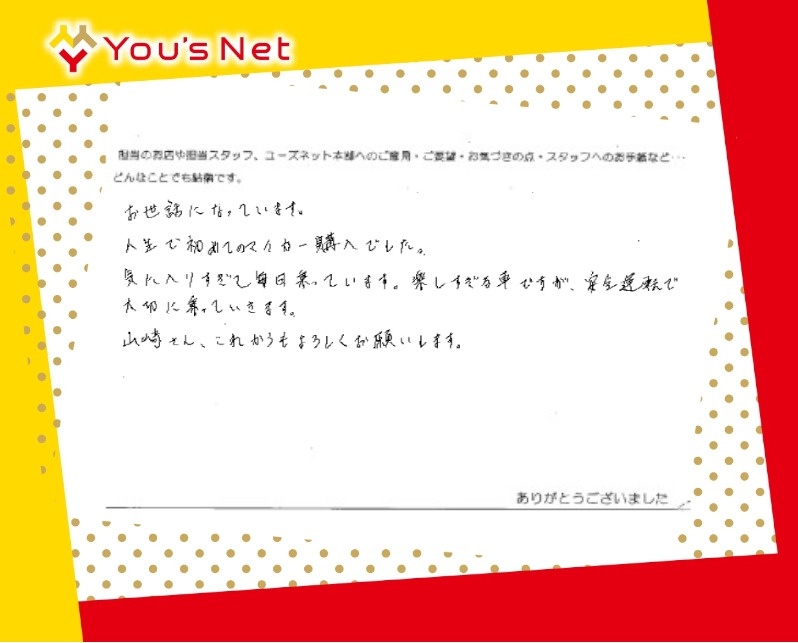 You's Net
担当のお店や担当スタッフ、ユーズネット本部へのご意見・ご要望・お気づきの点・スタッフへのお手紙など・・・
どんなことでも結構です。
お世話になっています。
人生で初めてのマイカー購入でした。
気に入りすぎて毎日乗っています。楽しすぎる車ですが、安全運転で
大切に乗っていきます。
山崎さん、これからもよろしくお願いします。
ありがとうございました